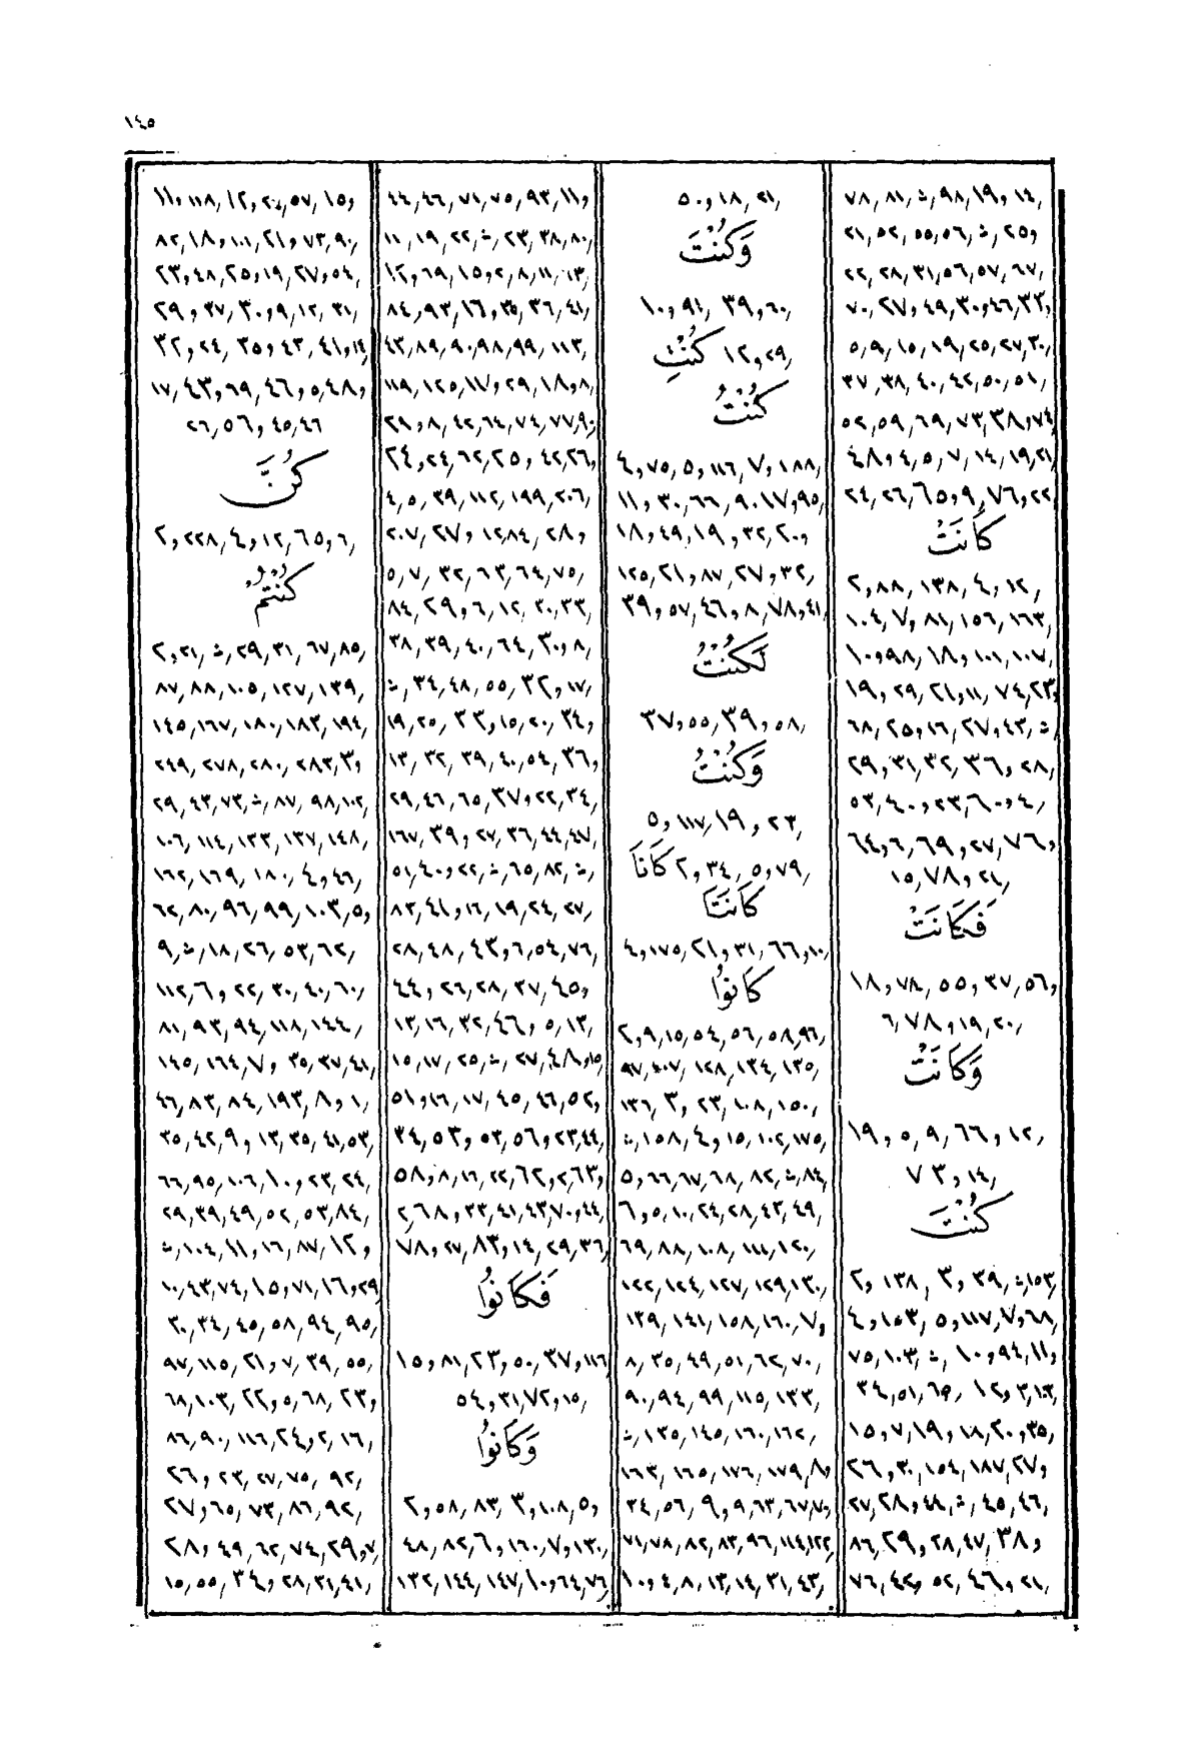 ١٤٥
٧٨,٨١,ث,٩٨,١٩,١٤,
٢١,٥٢,٥٥,٥٦,ث,٢٥,
٢٢,٢٨,٣١,٥٦,٥٧,٦٧,
٧٠,٢٧,٤٩,٣٠,٤٦,٣٢,
٥,٩,١٥,١٩,٢٥,٢٧,٣٠,
٣٧,٣٨,٤٠,٤٢,٥٠,٥١,
٥٢,٥٩,٦٩,٧٣,٣٨,٧٤,
٤٨,٤,٥,٧,١٤,١٩,٢١,
٢٤,٢٦,٦٥,٩,٧٦,٢٢,
كَانَتْ
٢,٨٨,١٣٨,٤,١٢,
١٠٤,٧,٨١,١٥٦,١٦٣,
١٠,٩٨,١٨,١٠١,١٠٧,
١٩,٢٩,٢١,١١,٧٤,٢٣,
٦٨,٢٥,١٦,٢٧,٤٣,ث,
٢٩,٣١,٣٢,٣٦,٢٨,
٥٣,٤٠,٢٣,٦٠,٤,
٦٤,٦,٦٩,٢٧,٧٦,
١٥,٧٨,٢١,
فَكَانَتْ
١٨,٧٨,٥٥,٣٧,٥٦,
٦,٧٨,١٩,٢٠,
وَكَانَتْ
١٩,٥,٩,٦٦,١٢,
٧٣,١٤,
كُنْتَ
٢,١٣٨,٣,٣٩,ث,١٥٣,
٤,١٥٣,٥,١١٧,٧,٦٨,
٧٥,١٠٣,ث,١٠,٩٤,١١,
٣٤,٥١,٦٥,١٢,٣,١٠٢,
١٥,٧,١٩,١٨,٢٠,٣٥,
٢٦,٣٠,١٥٤,١٨٧,٢٧,
٢٧,٢٨,٤٤,ث,٤٥,٤٦,
٨٦,٢٩,٢٨,٤٧,٣٨,
٧٦,٤٢,٥٢,٤٦,٢١,
٥٠,١٨,٢١,
وَكُنْتَ
١٠,٩١,٣٩,٦٠,
كُنْتِ ١٢,٢٩,
كُنْتُ
٤,٧٥,٥,١١٦,٧,١٨٨,
١١,٣٠,٦٦,٩٠,١٧,٩٥,
١٨,٤٩,١٩,٣٢,٢٠,
١٢٥,٢١,٨٧,٢٧,٣٢,
٣٩,٥٧,٤٦,٨,٧٨,٤١,
لَكُنْتُ
٣٧,٥٥,٣٩,٥٨,
وَكُنْتُ
٥,١١٧,١٩,٢٣,
كَانَا ٢,٣٤,٥,٧٩,
كَانَتَا
٤,١٧٥,٢١,٣١,٦٦,١٠,
كَانُوا
٢,٩,١٥,٥٤,٥٦,٥٨,٩٦,
٩٧,١٠٧,١٢٨,١٣٤,١٣٥,
١٣٦,٣,٢٣,١٠٨,١٥٠,
ث,١٥٨,٤,١٥,١٠٢,١٧٥,
٥,٦٦,٦٧,٦٨,٨٢,ث,٨٤,
٦,٥,١٠,٢٤,٢٨,٤٣,٤٩,
٦٩,٨٨,١٠٨,١١١,١٢٠,
١٢٢,١٢٤,١٢٧,١٢٩,١٣٠,
١٣٩,١٤١,١٥٨,١٦٠,٧,
٨,٣٥,٤٩,٥١,٦٢,٧٠,
٩٠,٩٤,٩٩,١١٥,١٣٣,
ث,١٣٥,١٤٥,١٦٠,١٦٢,
١٦٣,١٦٥,١٧٦,١٧٩,٨,
٣٤,٥٦,٩,٩,٦٣,٦٧,٧٠,
٧١,٧٨,٨٢,٨٣,٩٦,١١٤,١٢٢,
١٠,٤,٨,١٣,١٤,٣١,٤٣,
٤٤,٤٦,٧١,٧٥,٩٣,١١,
١١,١٩,٢٢,ث,٢٣,٣٨,٨٠,
١٢,٦٩,١٥,٢,٨,١١,١٣,
٨٤,٩٣,١٦,٣٥,٣٦,٤١,
٤٣,٨٩,٩٠,٩٨,٩٩,١١٣,
١١٩,١٢٥,١٧,٢٩,١٨,٨,
٢٨,٨,٤٢,٦٤,٧٤,٧٧,٩٠,
٢٤,٢٤,٦٢,٢٥,٤٢,٢٦,
٤,٥,٣٩,١١٢,١٩٩,٢٠٦,
٢٠٧,٢٧,١٢,٨٤,٢٨,
٥,٧,٣٢,٦٣,٦٤,٧٥,
٨٤,٢٩,٦,١٢,٣٠,٣٣,
٣٨,٣٩,٤٠,٦٤,٣٠,٨,
ث,٣٤,٤٨,٥٥,٣٢,١٧,
١٩,٢٥,٣٣,١٥,٢٠,٣٤,
١٣,٣٢,٣٩,٤٠,٥٤,٣٦,
٢٩,٤٦,٦٥,٣٧,٢٢,٣٤,
١٦٧,٣٩,٢٧,٣٦,٤٤,٤٧,
٥١,٤٠,٢٢,ث,٦٥,٨٢,ث,
٨٣,٤١,١٦,١٩,٢٤,٢٧,
٢٨,٤٨,٤٣,٦,٥٤,٧٦,
٤٤,٢٦,٢٨,٣٧,٤٥,
١٣,١٦,٣٢,٤٦,٥,١٣,
١٥,١٧,٢٥,ث,٢٧,٤٨,١٥,
٥١,١٦,١٧,٤٥,٤٦,٥٢,
٣٤,٥٣,٥٢,٥٦,٢٣,٢٤,
٥٨,٨,١٦,٢٢,٦٢,٢,٦٣,
٢,٦٨,٣٣,٤١,٤٣,٧٠,٤٤,
٧٨,٢٧,٨٣,١٤,٢٩,٣٦,
فَكَانُوا
١٥,٨١,٢٣,٥٠,٣٧,١١٦,
٥٤,٣١,٧٢,١٥,
وَكَانُوا
٢,٥٨,٨٣,٣,١٠٨,٥,
٤٨,٨٢,٦,١٦٠,٧,١٣٠,
١٣٢,١٤٤,١٤٧,١٠,٦٤,٧٦,
١١,١١٨,١٢,٢٠,٥٧,١٥,
٨٢,١٨,١٠١,٢١,٧٣,٩٠,
٢٣,٤٨,٢٥,١٩,٢٧,٥٤,
٢٩,٣٧,٣٠,٩,١٢,٣١,
٣٢,٢٤,٣٥,٤٣,٤١,١٤,
١٧,٤٣,٦٩,٤٦,٥,٤٨,
٢٦,٥٦,٤٥,٤٦
كُنَّ
٢,٢٢٨,٤,١٢,٦٥,٦,
كُنْتُمْ
٢,٢١,ث,٢٩,٣١,٦٧,٨٥,
٨٧,٨٨,١٠٥,١٢٧,١٣٩,
١٤٥,١٦٧,١٨٠,١٨٣,١٩٤,
٢٤٩,٢٧٨,٢٨٠,٢٨٣,٣,
٢٩,٤٣,٧٣,ث,٨٧,٩٨,١٠٢,
١٠٦,١١٤,١٣٣,١٣٧,١٤٨,
١٦٢,١٦٩,١٨٠,٤,٤٦,
٦٢,٨٠,٩٦,٩٩,١٠٣,٥,
٩,ث,١٨,٢٦,٥٣,٦٢,
١١٢,٦,٢٢,٣٠,٤٠,٦٠,
٨١,٩٣,٩٤,١١٨,١٤٤,
١٤٥,١٦٤,٧,٣٥,٣٧,٤١,
٤٦,٨٣,٨٤,١٩٣,٨,١,
٣٥,٤٢,٩,١٣,٣٥,٤١,٥٣,
٦٦,٩٥,١٠٦,١٠,٢٣,٢٤,
٢٩,٣٩,٤٩,٥٢,٥٣,٨٤,
ث,١٠٤,١١,١٦,٨٧,١٢,
١٠,٤٣,٧٤,١٥,٧١,١٦,٢٩,
٣٠,٣٤,٤٥,٥٨,٩٤,٩٥,
٩٧,١١٥,٢١,٧,٣٩,٥٥,
٦٨,١٠٣,٢٢,٥,٦٨,٢٣,
٨٦,٩٠,١١٦,٢٤,٢,١٦,
٢٦,٢٣,٢٧,٧٥,٩٢,
٢٧,٦٥,٧٣,٨٦,٩٢,
٢٨,٤٩,٦٢,٧٤,٢٩,٧,
١٥,٥٥,٣٤,٢٨,٣١,٤١,